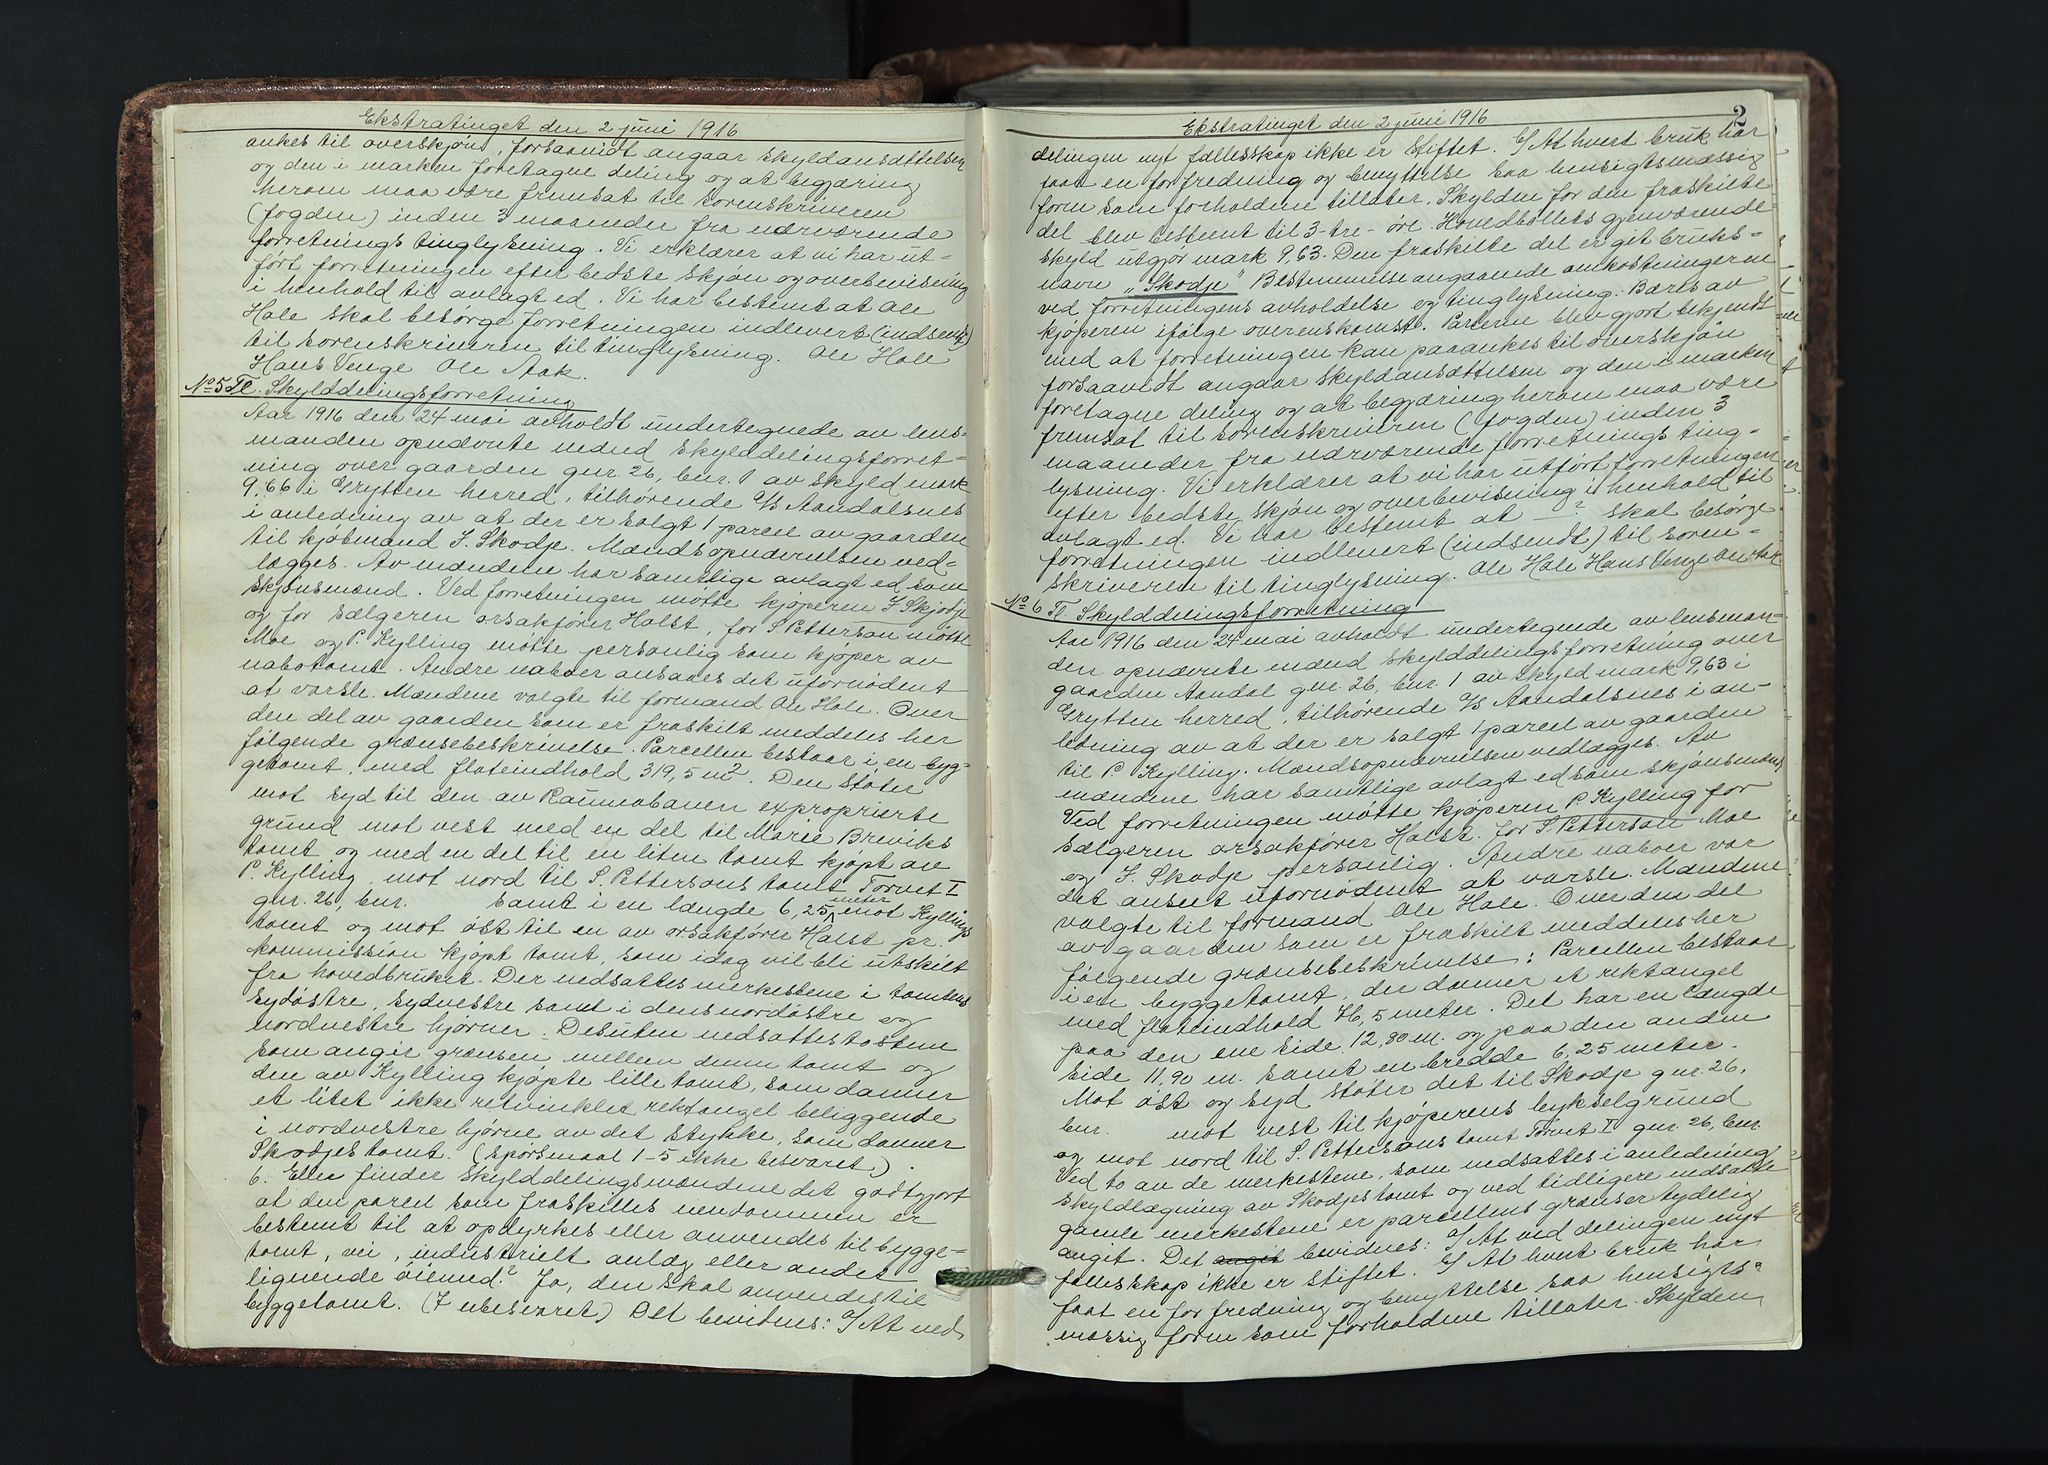 Ekstratinget den 2 juni 1916
ankes til overskjøn, forsaavidt angaar skyldansættelsen
og den i marken foretagne deling og at begjæring
herom maa være fremsat til sorenskriveren
(fogden) inden 3 maaneder fra nærværende
forretnings tinglysning. Vi erklærer at vi har ut-
ført forretningen efter bedste skjøn og overbevisning
i henhold til avlagt ed. Vi har bestemt at Ole
Hole skal besørge forretningen indlevert (indsendt)
til sorenskriveren til tinglysning. Ole Hole
Hans Venge Ole Aak.
No 5 Tl. Skylddelingsforretning
Aar 1916 den 24 mai avholdt undertegnede av lens-
manden opnævnte mænd skylddelingsforret-
ning over gaarden gnr. 26, bnr. 1 av skyld mark
9,66 i Grytten herred, tilhørende A/S Aandalsnes
i anledning av at der er solgt 1 parcel av gaarden
til kjøbmand J. Skodje. Mændsopnævnelsen ved-
lægges. Av mændene har samtlige avlagt ed som
skjønsmænd. Ved forretningen møtte kjøperen J. Skjodje
og for sælgeren orsakfører Holst, for S. Petterson møtte
Moe og P. Kylling møtte personlig som kjøper av
nabotomt. Andre naboer ansaaes det ufornødent
at varsle. Mændene valgte til formand Ole Hole. Over
den del av gaarden som er fraskilt meddeles her
følgende grænsebeskrivelse. Parcellen bestaar i en byg-
getomt, med flateindhold 319,5 m2. Den støter
mot syd til den av Raumabanen exproprierte
grund mot vest med en del til Marie Breviks
tomt og med en del til en liten tomt kjøpt av
P. Kylling, mot nord til S. Pettersons tomt Torvet I
gnr. 26, bnr. samt i en længde 6,25 meter mot Kyllings
tomt og mot øst til en av orsakfører Holst pr.
kommission kjøpt tomt, som idag vil bli utskilt
fra hovedbruket. Der nedsattes merkestene i tomtens
sydøstre, sydvestre samt i dens nordøstre og
nordvestre hjørner. Desuten nedsattes to stene
som angir grænsen mellem denne tomt og
den av Kylling kjøpte lille tomt, som danner
et litet ikke retvinklet rektangel beliggende
i nordvestre hjørne av det stykke, som danner
Skodjes tomt. (Spørsmaal 1-5 ikke besvaret.)
6. Eller finder skylddelingsmændene det godtgjort
at den parcel som fraskilles eiendommen er
bestemt til at opdyrkes eller anvendes til bygge-
tomt, vei, industrielt anlæg eller andet
lignende øiemed? Ja, den skal anvendes til
byggetomt. (7 ubesvaret) Det bevidnes: a/ At ved
Ekstratinget den 2 juni 1916
2
delingen nyt fællesskap ikke er stiftet. b/ At hvert bruk har
faat en for fredning og benyttelse saa hensigtsmæssig
form som forholdene tillater. Skylden for den fraskilte
del blev bestemt til 3-tre- øre. Hovedbøllets gjenværende-
skyld utgjør mark 9,63. Den fraskilte del er git bruks-
navn "Skodje" Bestemmelse angaaende omkostningerne
ved forretningens avholdelse og tinglysning: Bæres av
kjøperen ifølge overenskomst. Parterne blev gjort bekjendt
med at forretningen kan paaankes til overskjøn
forsaavidt angaar skyldansættelsen og den i marken
foretagne deling og at begjæring herom maa være
fremsat til sorenskriveren (fogden) inden 3
maaneder fra nærværende forretnings ting-
lysning. Vi erklærer at vi har utført forretningen
efter bedste skjøn og overbevisning i henhold til
avlagt ed. Vi har bestemt at —?— skal besørge
forretningen indlevert (indsendt) til soren-
skriveren til tinglysning. Ole Hole Hans Venge Ole Aak
No 6 Tl. Skylddelingsforretning
Aar 1916 den 24 mai avholdt undertegnede av lensman-
den opnævnte mænd skylddelingsforretning over
gaarden Aandal gnr. 26, bnr. 1 av skyld mark 9,63 i
Grytten herred, tilhørende A/S Aandalsnes i an-
ledning av at der er solgt 1 parcel av gaarden
til P. Kylling. Mændsopnævnelsen vedlægges. Av
mændene har samtlige avlagt ed som skjønsmænd
Ved forretningen møtte kjøperen P. Kylling for
sælgeren orsakfører Holst. for S. Petterson Moe
og J. Skodje personlig. Andre naboer var
det anseet ufornødent at varsle. Mændene
valgte til formand Ole Hole. Over den del
av gaarden som er fraskilt meddeles her
følgende grænsebeskrivelse: Parcellen bestaar
i en byggetomt, der danner et rektangel
med flateindhold 76,5 meter. Det har en længde
paa den ene side 12,80 m. og paa den anden
side 11,90 m. samt en bredde 6,25 meter.
Mot øst og syd støter det til Skodje gnr. 26,
bnr. mot vest til kjøperens bykselgrund
og mot nord til S. Pettersons tomt Torvet I gnr. 26, bnr.
Ved to av de merkestene, som nedsattes i anledning
skyldlægning av Skodjes tomt og ved tidligere nedsatte
gamle merkestene er parcellens grænser tydelig
angit. Det angit bevidnes: a/ At ved delingen nyt
fællesskap ikke er stiftet. b/ At hvert bruk har
faat en for fredning og benyttelse saa hensigts-
mæssig form som forholdene tillater. Skylden